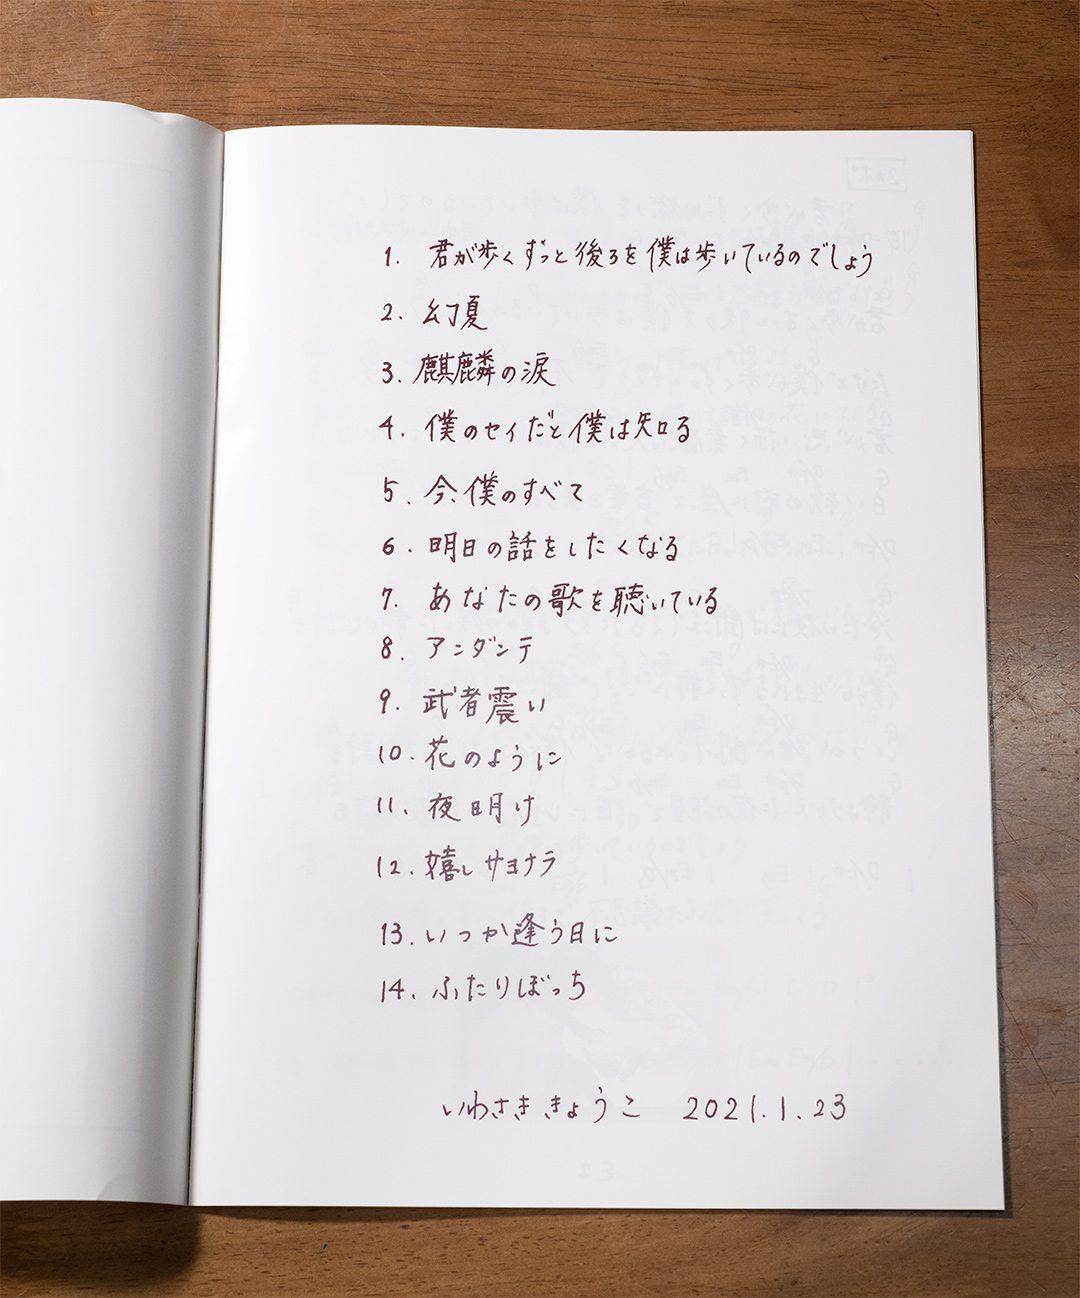 1. 君が歩くずっと後ろを僕は歩いているのでしょう
2. 幻夏
3. 麒麟の涙
4. 僕のセイだと僕は知る
5. 今、僕のすべて
6. 明日の話をしたくなる
7. あなたの歌を聴いている
8. アンダンテ
9. 武者震い
10. 花のように
11. 夜明け
12. 嬉しサヨナラ
13. いつか逢う日に
14. ふたりぼっち
いわさききょうこ 2021.1.23